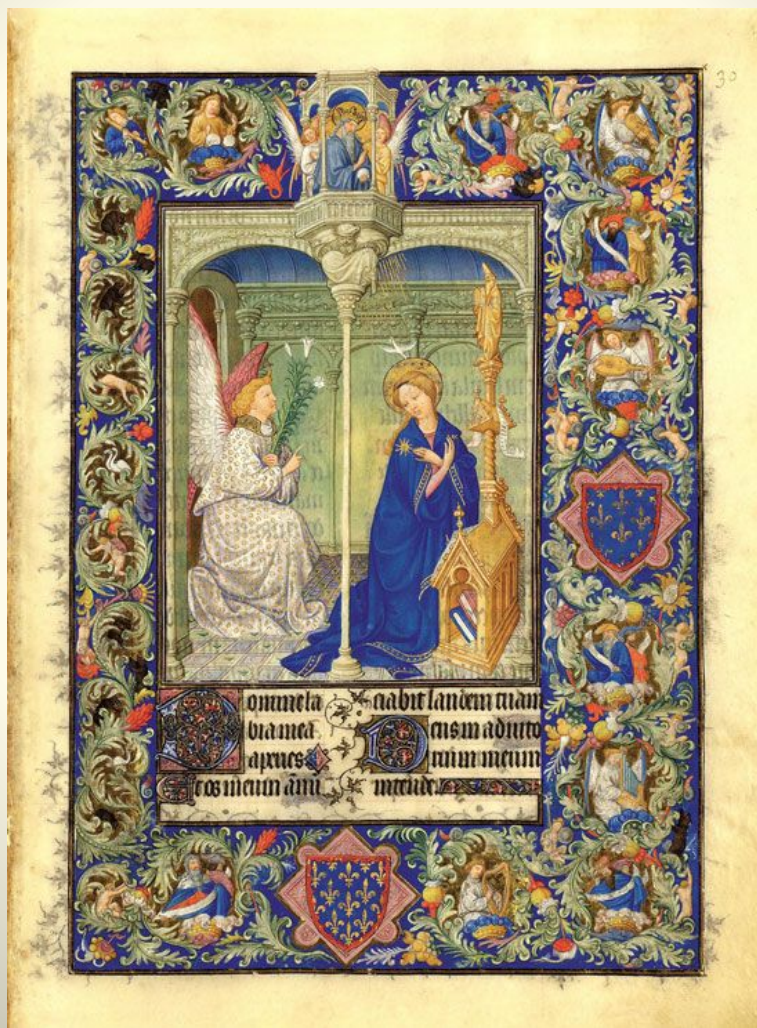 30
Domine la
bia mea
aperies
Et os meum ānu
ciabit laudem tuam
Deus in adiuto
rium meum
intende